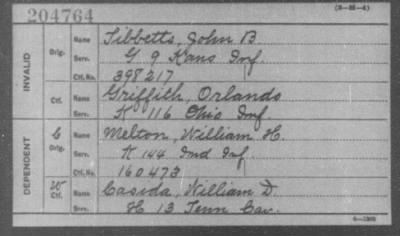 204764
(3-55-4)
INVALID
Orig.
Name Tibbetts, John B
Serv. G 9 Kans Inf.
Ctf. No. 398217
Ctf.
Name Griffith, Orlando
Serv. K 116 Ohio Inf.
DEPENDENT
C
Orig.
Name Melton, William H.
Serv. K 144 Ind Inf.
Ctf. No. 160473
W
Ctf.
Name Casida, William D.
Serv. H 13 Tenn Cav.